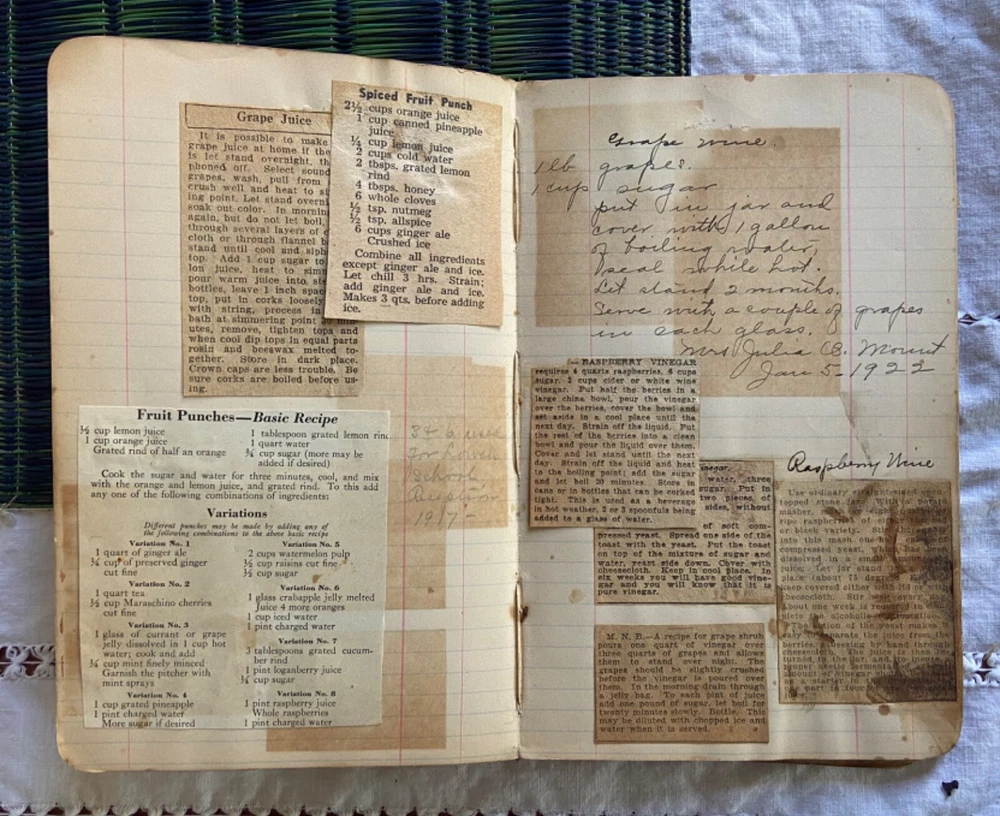 Grape Juice
It is possible to make
grape juice at home if the
is let stand overnight, th
phoned off. Select sound
grapes, wash, pull from
crush well and heat to
ing point. Let stand overni
soak out color. In mornin
again, but do not let boil.
through several layers of
cloth or through flannel
stand until cool and siph
top. Add 1 cup sugar to
lon juice, heat to sim
pour warm juice into ste
bottles, leave 1 inch spac
top, put in corks loosely
with string, process in
bath at simmering point min
utes, remove, tighten tops and
when cool dip tops in equal parts
rosin and beeswax melted to-
gether. Store in dark place.
Crown caps are less trouble. Be
sure corks are boiled before us-
ing.
Spiced Fruit Punch
2½ cups orange juice
1 cup canned pineapple
juice
¼ cup lemon juice
2 cups cold water
2 tbsps. grated lemon
rind
4 tbsps. honey
6 whole cloves
½ tsp. nutmeg
½ tsp. allspice
6 cups ginger ale
Crushed ice
Combine all ingredients
except ginger ale and ice.
Let chill 3 hrs. Strain;
add ginger ale and ice.
Makes 3 qts. before adding
ice.
Fruit Punches—Basic Recipe
½ cup lemon juice
1 cup orange juice
Grated rind of half an orange
1 tablespoon grated lemon rind
1 quart water
¾ cup sugar (more may be
added if desired)
Cook the sugar and water for three minutes, cool, and mix
with the orange and lemon juice, and grated rind. To this add
any one of the following combinations of ingredients:
Variations
Different punches may be made by adding any of
the following combinations to the above basic recipe
Variation No. 1
1 quart of ginger ale
¼ cup of preserved ginger
cut fine
Variation No. 2
1 quart tea
½ cup Maraschino cherries
cut fine
Variation No. 3
1 glass of currant or grape
jelly dissolved in 1 cup hot
water; cook and add
¼ cup mint finely minced
Garnish the pitcher with
mint sprays
Variation No. 4
1 cup grated pineapple
1 pint charged water
More sugar if desired
Variation No. 5
2 cups watermelon pulp
½ cup raisins cut fine
½ cup sugar
Variation No. 6
1 glass crabapple jelly melted
Juice 4 more oranges
1 cup iced water
1 pint charged water
Variation No. 7
3 tablespoons grated cucum-
ber rind
1 pint loganberry juice
¼ cup sugar
Variation No. 8
1 pint raspberry juice
Whole raspberries
1 pint charged water
3 - 6 used
for
School
1917 -
Grape wine.
1 lb grapes.
1 cup sugar
put in jar and
cover with 1 gallon
of boiling water,
seal while hot.
Let stand 2 months.
Serve with a couple of grapes
in each glass.
Mrs Julia B. Mount
Jan 5 - 1922
RASPBERRY VINEGAR
requires 4 quarts raspberries, 4 cups
sugar, 2 cups cider or white wine
vinegar. Put half the berries in a
large china bowl, pour the vinegar
over the berries, cover the bowl and
set aside in a cool place until the
next day. Strain off the liquid. Put
the rest of the berries into a clean
bowl and pour the liquid over them.
Cover and let stand until the next
day. Strain off the liquid and heat
to the boiling point; add the sugar
and let boil 20 minutes. Store in
cans or in bottles that can be corked
tight. This is used as a beverage
in hot weather, 2 or 3 spoonfuls being
added to a glass of water.
vinegar.
water, three
sugar. Put in
two pieces of
sides, without
of soft com-
pressed yeast. Spread one side of the
toast with the yeast. Put the toast
on top of the mixture of sugar and
water, yeast side down. Cover with
cheesecloth. Keep in cool place. In
six weeks you will have good vine-
gar and you will know that it is
pure vinegar.
M. N. B.—A recipe for grape shrub
pours one quart of vinegar over
three quarts of grapes and allows
them to stand over night. The
grapes should be slightly crushed
before the vinegar is poured over
them. In the morning drain through
a jelly bag. To each pint of juice
add one pound of sugar, let boil for
twenty minutes slowly. Bottle. This
may be diluted with chopped ice and
water when it is served.
Raspberry Wine
Use ordinary straight-sided open
topped stone jar. With potato
masher,
ripe raspberries of
or black variety.
into this mash one
compressed yeast,
dissolved in a small
juice. Let jar stand
place (about 75 degrees)
keep covered either with lid or
cheesecloth. Stir every day
About one week is required to
plete the alcoholic fermentation